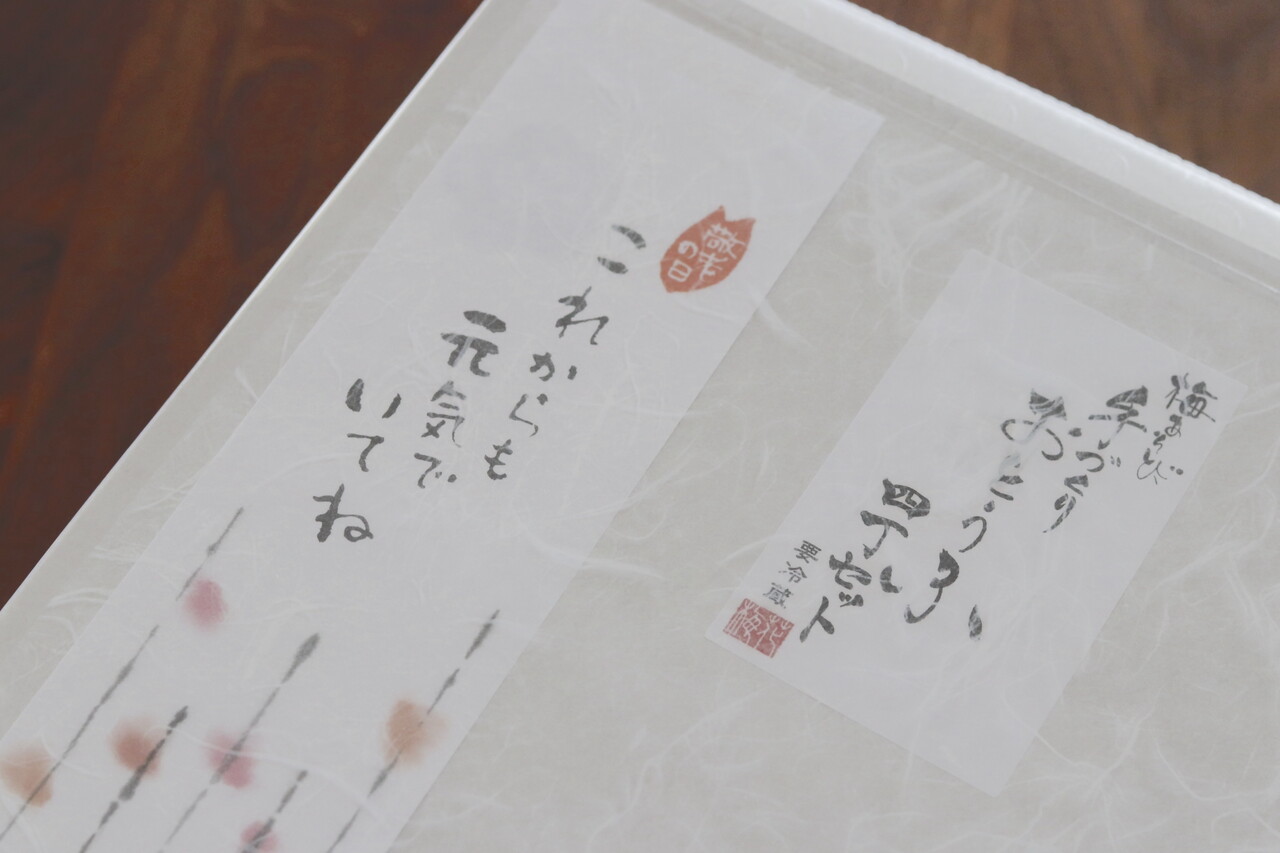 敬老
の日
これからも
元気で
いてね
梅あそび
手づくり
おとうふ
四丁セット
要冷蔵